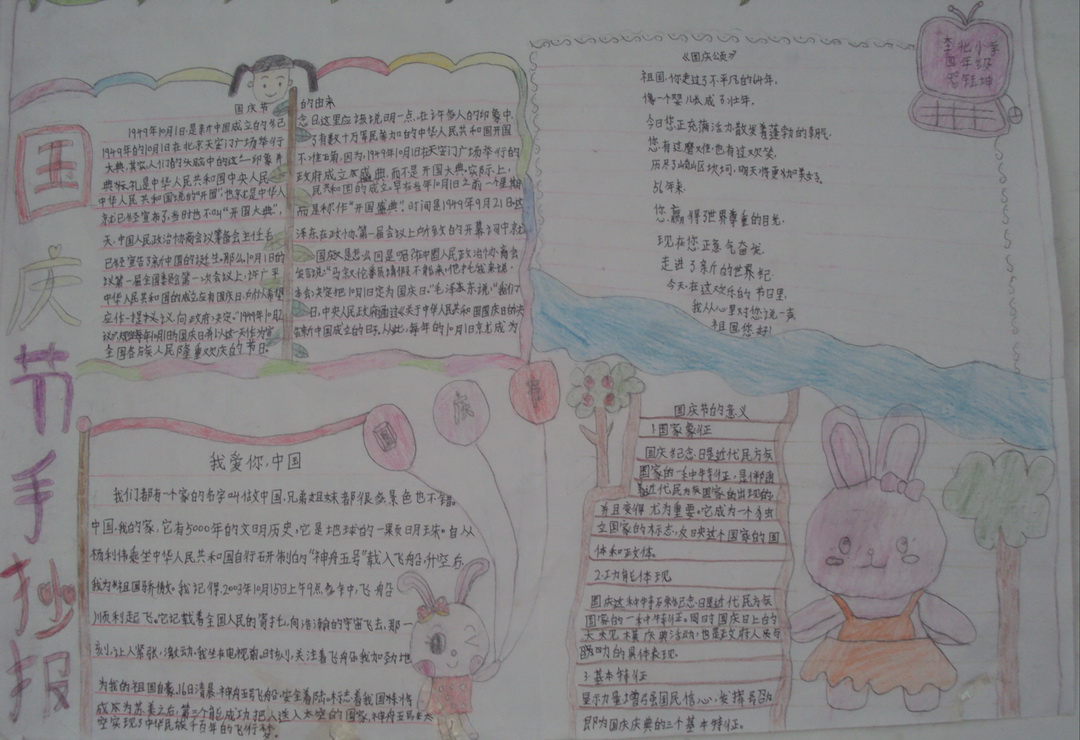 国庆节手抄报
李化小学
四年级
国庆节的由来
《国庆颂》
祖国,你走过了不平凡的64年,
像一个婴儿长成了壮年,
今日您正充满活力散发着蓬勃的朝气
您有过磨难,也有过欢笑
历尽了崎岖坎坷,明天将更加美好
您赢得世界尊重的目光
现在您正意气奋发
走进了崭新的世界纪
今天,在这欢乐的节日里,
我从心里对您说一声
祖国您好!
1949年10月1日是新中国成立的
1949年的10月1日在北京天安门广场举行
大典,其实人们的头脑中的这一印象并
典标礼是中华人民共和国中央人民
中华人民共和国说的"开国",也就是中华人
就已经宣布了,当时也不叫"开国大典",
天,中国人民政治协商会议筹备会主任毛
已经宣告了新中国的诞生。那么10月1日的
议第一届全国委员会第一次会议上,许广平
中华人民共和国的成立应有国庆日,
向政府决定。"1949年10月2
全国各族人民隆重欢庆的节日。
念日这里应该说明一点,在许多人的印象中,
了有数十万军民参加的中华人民共和国开国
不准确,因为,1949年10月1日在天安门广场举行的
政府成立盛典,而不是开国大典,实际上,
民共和国的成立,早在当年10月1日之前一个星期
而是称作"开国盛典",时间是1949年9月21日这
泽东在政协第一届会议上所致的开幕词中就
国庆又是怎么回事呢?在中国人民政治协商会
发言说:"马叙伦委员请假不能来,他托我来说,
本会决定把10月1日定为国庆日。"毛泽东说:"我们
日,中央人民政府通过《关于中华人民共和国国庆日的决
新中国成立的日子,从此,每年的10月1日就成为
国
庆
节
我爱你,中国
我们都有一个家的名字叫做中国,兄弟姐妹都很多景色也不错。
中国,我的家,它有5000年的文明历史,它是地球的一颗明珠。自从
杨利伟乘坐中华人民共和国自行研制的"神舟五号"载入飞船升空后,
我为祖国骄傲。我记得,2003年10月15日上午9点整,飞船
顺利起飞。它记载着全国人民的寄托,向浩瀚的宇宙飞去,那一
刻,让人紧张,激动,我坐在电视前,时刻,关注着飞船
为我的祖国自豪。16日清晨,神舟五号飞船安全着陆,标志着我国
成为苏美之后,第三个能成功把人送入太空的国家,神舟五号
空实现了中华民族千百年的飞行梦。
国庆节的意义
1国家象征
国庆纪念日是近代民族
国家的一种特征,是伴随
着近代民族国家的出现的
并且变得尤为重要。它成为一个独
立国家的标志,反映这个国家的国
体和政体。
2.功能体现
国庆这种特殊纪念日
国家的一种特征。同时国庆日上的
大规模庆典活动,也是政府人民与
的具体表现。
3.基本特征
显示力量,增强国民信心,发挥号召
即为国庆庆典的三个基本特征。